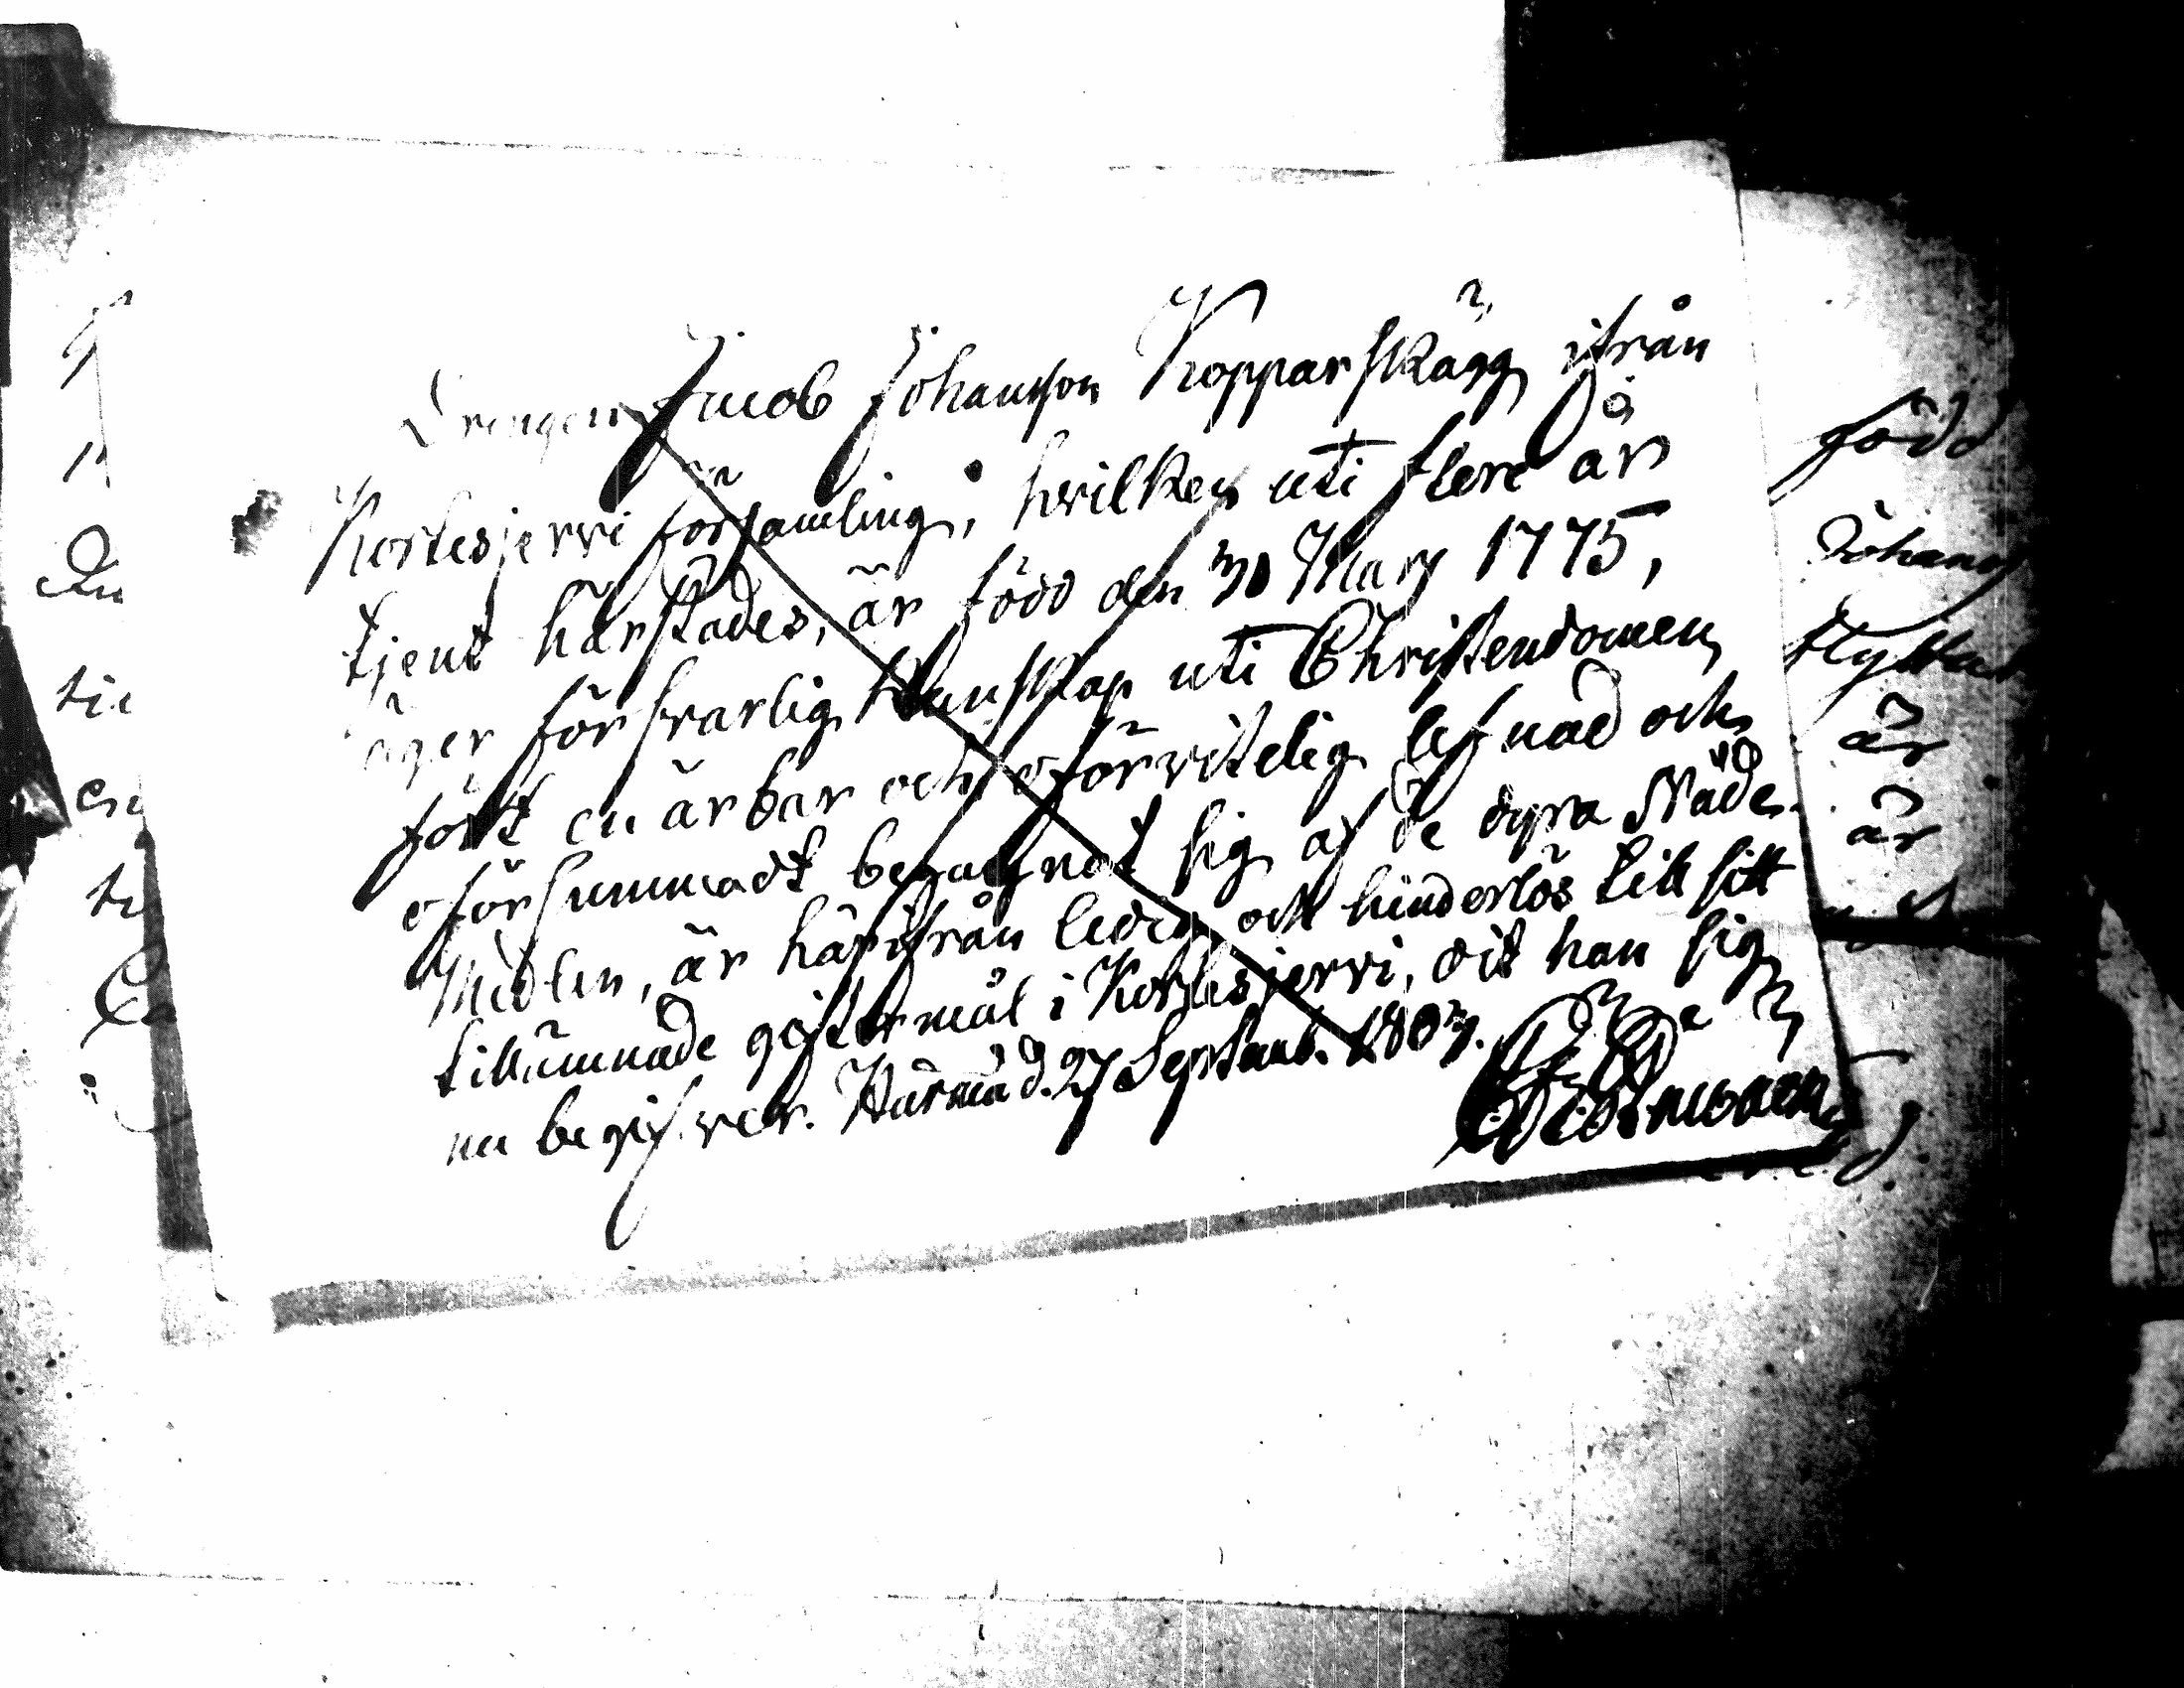 Drengen Jacob Johansson Kopparskägg ifrån
Kortesjervi församling, hvilken uti flere år
tjent härstädes, är född den 30 Mary 1775,
äger försvarlig kunskap uti Christendomen,
fört en ärbar och oförvitelig lefnad och
oförsummadt begagnat sig af de dyra Nåde-
Medlen, är härifrån ledig och hinderlös till sitt
tillämnade giftermål i Kortesjervi, dit han sig
nu begifver. Härmä d. 27 Septemb. 1803.
född
Johans
flyttat
är
är